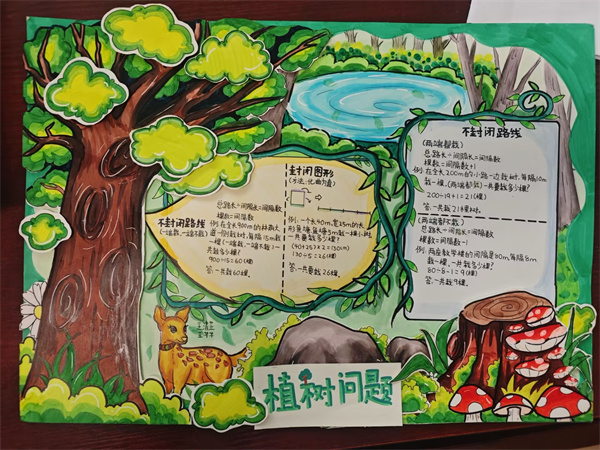 不封闭路线
(一端栽,一端不栽)
总路长÷间隔长=间隔数
棵数=间隔数
例:在全长900m的林荫大
道一侧栽树,每隔15m栽
一棵(一端栽,一端不栽)一
共栽多少棵?
900÷15=60(棵)
答:一共栽60棵。
封闭图形
(方法:化曲为直)
例:一个长40m,宽25m的长
形鱼塘每隔5m栽一棵小树
一共要栽多少棵?
(40+25)×2=130(m)
130÷5=26(棵)
答:一共要栽26棵。
不封闭路线
(两端都栽)
总路长÷间隔长=间隔数
棵数=间隔数+1
例:在全长200m的小路一边栽树,每隔10m
栽一棵,(两端都栽)一共要栽多少棵?
200÷10+1=21(棵)
答:一共栽21棵树。
(两端都不栽)
总路长÷间隔长=间隔数
棵数=间隔数-1
例:两座教学楼的间隔是80m,每隔8m
栽一棵,一共栽多少棵?
80÷8-1=9(棵)
答:一共栽9棵。
植树问题